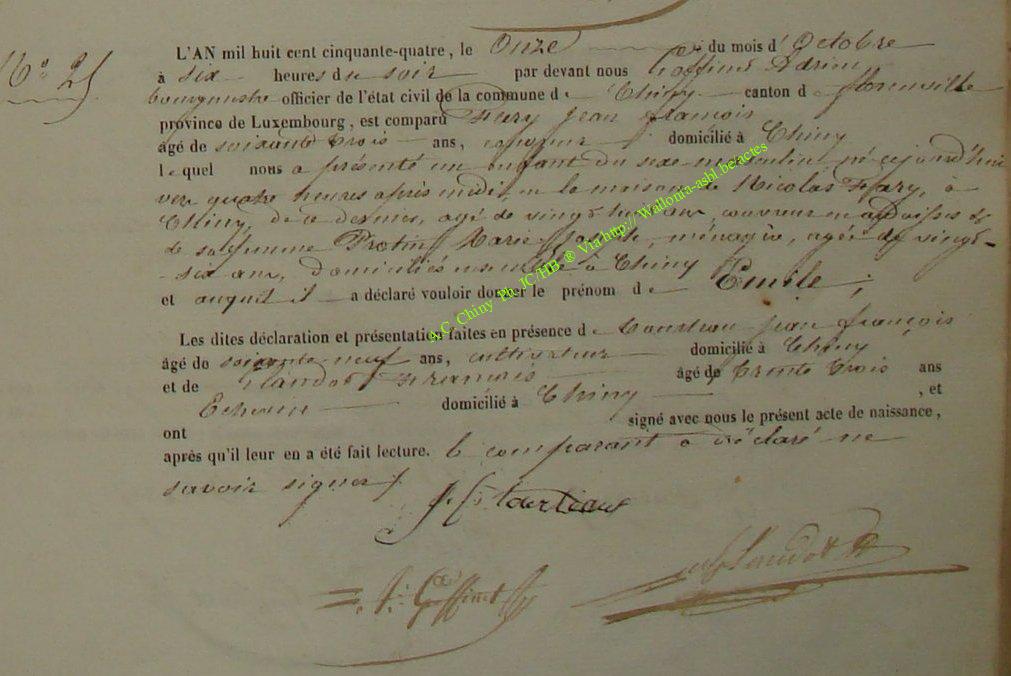 N° 25
L'AN mil huit cent cinquante-quatre, le Onze du mois d' Octobre
à six heures du soir par devant nous Goffinet Adrien
bourgmestre officier de l'état civil de la commune de Chiny canton de florenville
province de Luxembourg, est comparu Fery Jean françois
âgé de soixante trois ans, domicilié à Chiny
lequel nous a présenté un enfant du sexe masculin né cejourd'hui
vers quatre heures après midi, en la maison de Nicolas Fery, à
Chiny, de ce dernier, âgé de vingt huit ans, couvreur en ardoises &
de sa femme Protin Marie Josephe, ménagère, agée de vingt-
-six ans, domiciliés ensemble à Chiny
et auquel il a déclaré vouloir donner le prénom de Emile;
Les dites déclaration et présentation faites en présence de jean françois
âgé de soixante neuf ans, cultivateur domicilié à Chiny
et de Claudot françois âgé de trente trois ans
Echevin domicilié à Chiny, et
ont signé avec nous le présent acte de naissance,
après qu'il leur en a été fait lecture. le comparant a déclaré ne
savoir signer.
A. Goffinet
Claudot
A.C. Chiny Ph. JC/HB. ® Via http:// Wallonia-asbl.be/actes